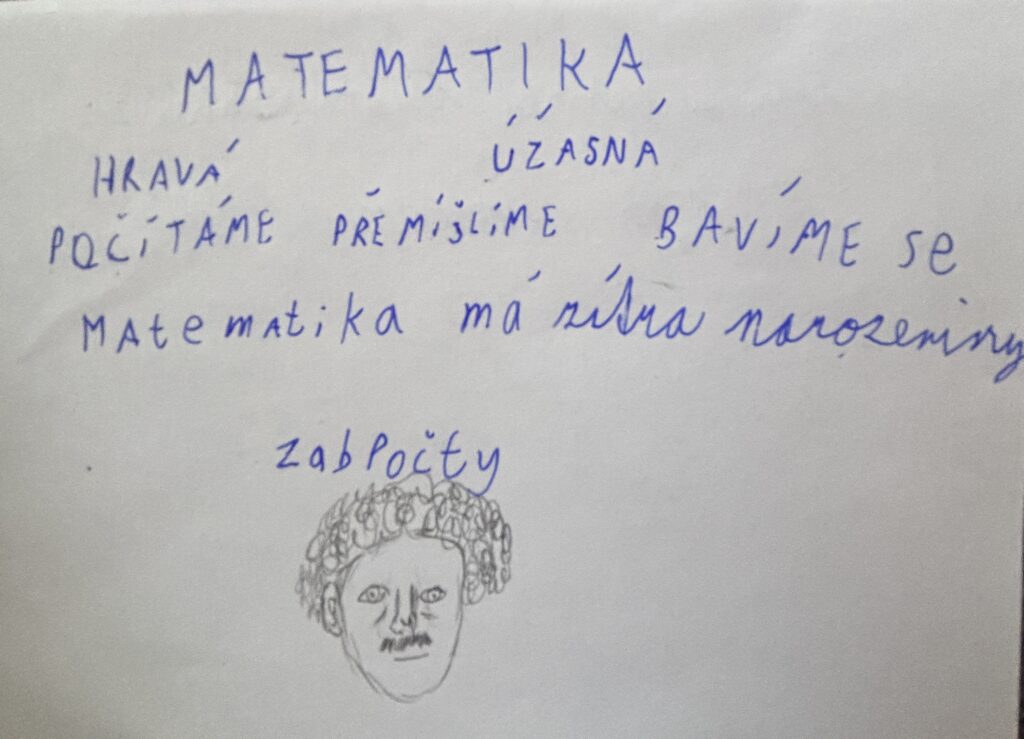 MATEMATIKA
HRAVÁ ÚŽASNÁ
POČÍTÁME PŘEMÍŠLÍME BAVÍME se
MAtematika má zítra narozeniny
zabPočty